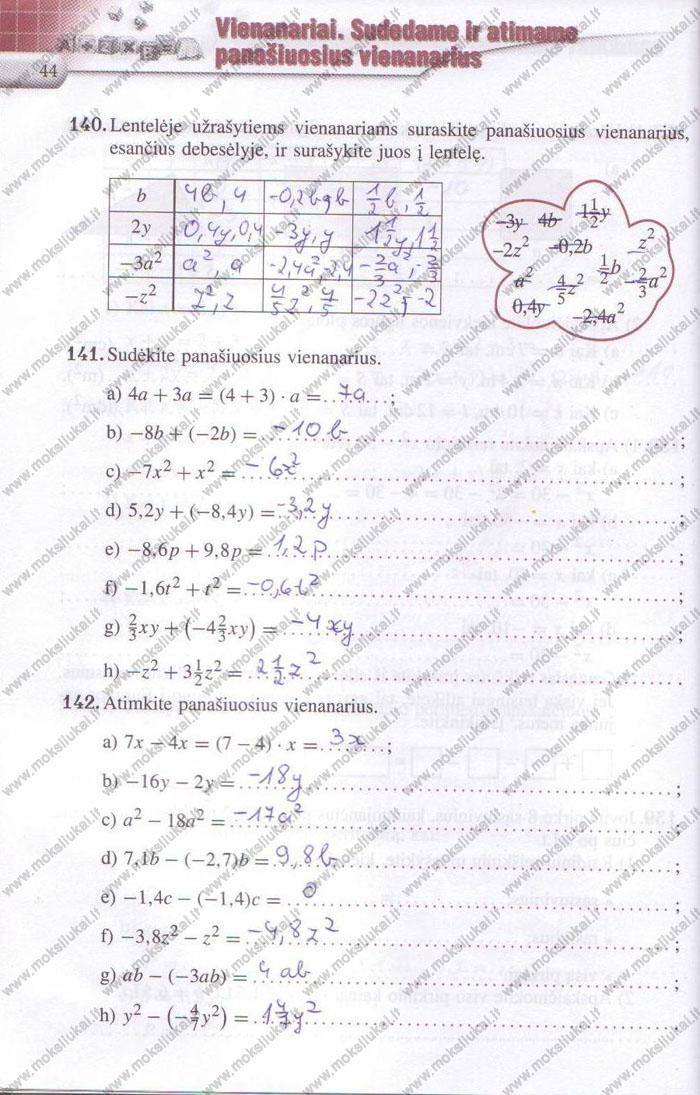 Vienanariai. Sudedame ir atimame
panašiuosius vienanarius
44
140. Lentelėje užrašytiems vienanariams suraskite panašiuosius vienanarius,
esančius debesėlyje, ir surašykite juos į lentelę.
b 4b, 4 -0,2b ½b, ½
2y 0,4y, 0,4 -3y, y 1½y, 1½
−3a² a², a -2,4a², -2,4 -⅔a², -⅔
−z² z², z ⅘z², ⅘ -2z², -2
−3y 4b 1½y
−2z² −0,2b z²
a² ⅘z² ½b −⅔a²
0,4y −2,4a²
141. Sudėkite panašiuosius vienanarius.
a) 4a + 3a = (4 + 3) · a = 7a ;
b) −8b + (−2b) = -10b ;
c) −7x² + x² = ;
d) 5,2y + (−8,4y) = -3,2y ;
e) −8,6p + 9,8p = 1,2p ;
f) −1,6t² + t² = -0,6t² ;
g) ⅔xy + (−4⅔xy) = -4xy ;
h) −z² + 3½z² = 2½z² .
142. Atimkite panašiuosius vienanarius.
a) 7x − 4x = (7 − 4) · x = 3x ;
b) −16y − 2y = -18y ;
c) a² − 18a² = -17a² ;
d) 7,1b − (−2,7)b = 9,8b ;
e) −1,4c − (−1,4)c = 0 ;
f) −3,8z² − z² = -4,8z² ;
g) ab − (−3ab) = 4ab ;
h) y² − (−4/7y²) = 1 4/7y² .
www.moksliukai.lt